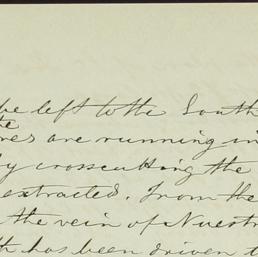 be left to the South
the
res are running in
by crosscutting the
extracted. From the
the vein of Nuestr
th has been driven t